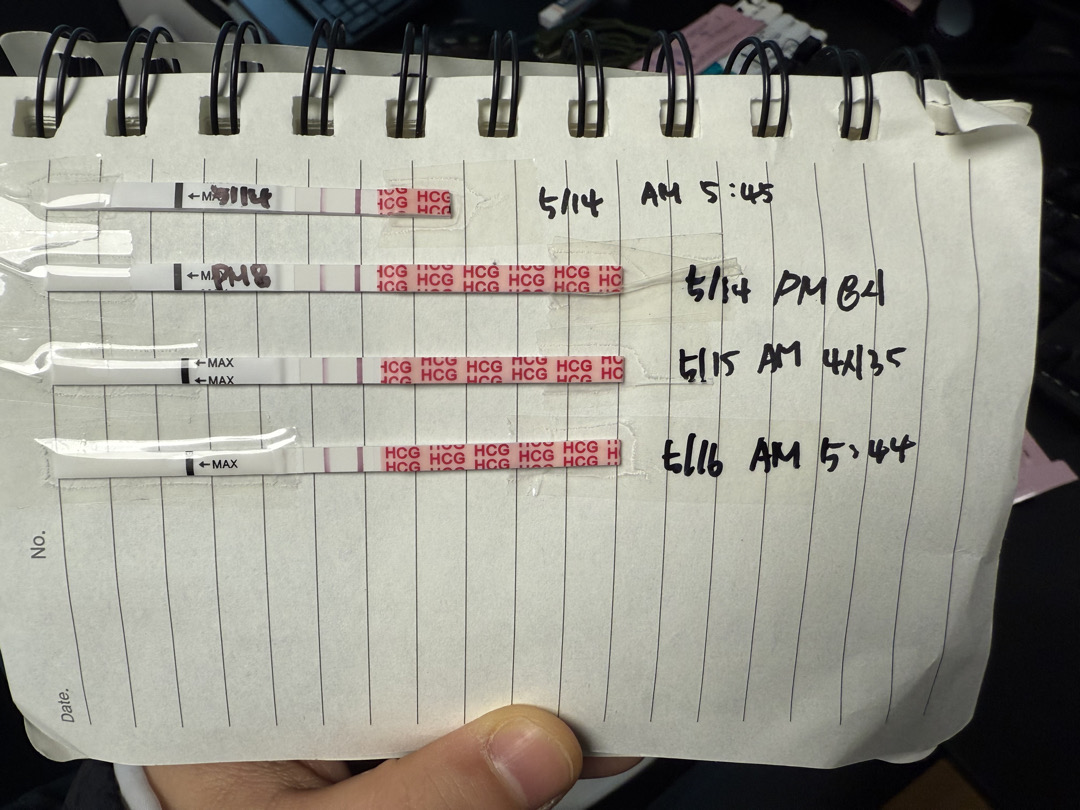 ←MAX 5/14 HCG HCG HCG HCG 5/14 AM 5:45
←MAX PM8 HCG HCG HCG HCG HCG HCG HCG HCG HCG HCG 5/14 PM 8시
←MAX HCG HCG HCG HCG HCG HC
←MAX HCG HCG HCG HCG HC 5/15 AM
←MAX HCG HCG HCG HCG HCG HCG HCG HCG HCG HCG 5/16 AM 5:44
No.
Date.